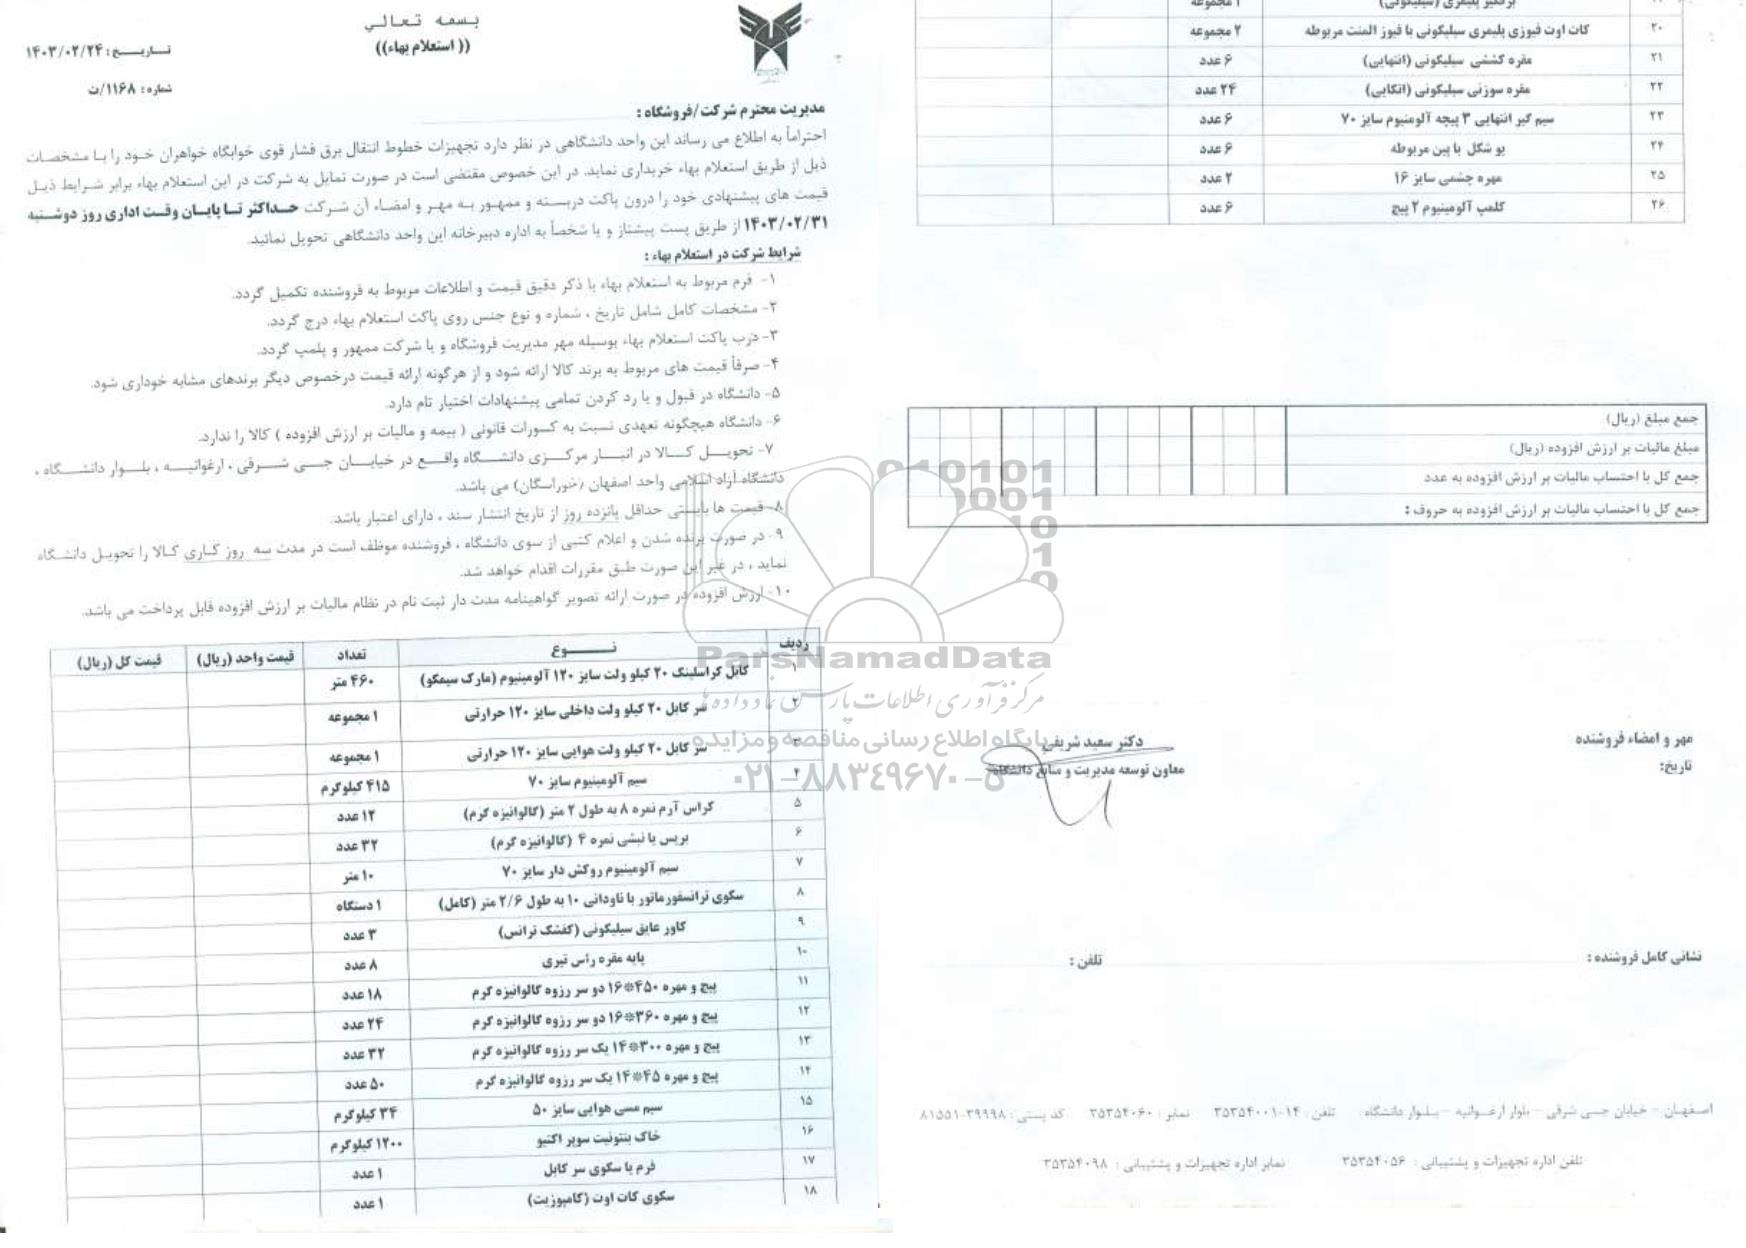 بسمه تعالي
(( استعلام بهاء))
تاریخ: ۱۴۰۳/۰۲/۲۴
شماره: ۱۱۶۸/ت
مدیریت محترم شرکت/فروشگاه :
احتراماً به اطلاع می رساند این واحد دانشگاهی در نظر دارد تجهیزات خطوط انتقال برق فشار قوی خوابگاه خواهران خود را با مشخصات
ذیل از طریق استعلام بهاء خریداری نماید. در این خصوص مقتضی است در صورت تمایل به شرکت در این استعلام بهاء برابر شرایط ذیل
قیمت های پیشنهادی خود را درون پاکت دربسته و ممهور به مهر و امضاء آن شرکت حداکثر تا پایان وقت اداری روز دوشنبه
۱۴۰۳/۰۲/۳۱ از طریق پست پیشتاز و یا شخصاً به اداره دبیرخانه این واحد دانشگاهی تحویل نمائید.
شرایط شرکت در استعلام بهاء :
۱- فرم مربوط به استعلام بهاء با ذکر دقیق قیمت و اطلاعات مربوط به فروشنده تکمیل گردد.
۲- مشخصات کامل شامل تاریخ ، شماره و نوع جنس روی پاکت استعلام بهاء درج گردد.
۳- درب پاکت استعلام بهاء بوسیله مهر مدیریت فروشگاه و یا شرکت ممهور و پلمپ گردد.
۴- صرفاً قیمت های مربوط به برند کالا ارائه شود و از هرگونه ارائه قیمت درخصوص دیگر برندهای مشابه خوداری شود.
۵- دانشگاه در قبول و یا رد کردن تمامی پیشنهادات اختیار تام دارد.
۶- دانشگاه هیچگونه تعهدی نسبت به کسورات قانونی ( بیمه و مالیات بر ارزش افزوده ) کالا را ندارد.
۷- تحویل کالا در انبار مرکزی دانشگاه واقع در خیابان جی شرقی ، ارغوانیه ، بلوار دانشگاه ،
دانشگاه آزاد اسلامی واحد اصفهان (خوراسگان) می باشد.
۸- قیمت ها بایستی حداقل پانزده روز از تاریخ انتشار سند ، دارای اعتبار باشد.
۹- در صورت برنده شدن و اعلام کتبی از سوی دانشگاه ، فروشنده موظف است در مدت سه روز کاری کالا را تحویل دانشگاه
نماید ، در غیر این صورت طبق مقررات اقدام خواهد شد.
۱۰- ارزش افزوده در صورت ارائه تصویر گواهینامه مدت دار ثبت نام در نظام مالیات بر ارزش افزوده قابل پرداخت می باشد.
ردیف نوع تعداد قیمت واحد (ریال) قیمت کل (ریال)
۱ کابل کراسلینک ۲۰ کیلو ولت سایز ۱۲۰ آلومینیوم (مارک سیمکو) ۴۶۰ متر
۲ سر کابل ۲۰ کیلو ولت داخلی سایز ۱۲۰ حرارتی ۱ مجموعه
۳ سر کابل ۲۰ کیلو ولت هوایی سایز ۱۲۰ حرارتی ۱ مجموعه
۴ سیم آلومینیوم سایز ۷۰ ۴۱۵ کیلوگرم
۵ کراس آرم نمره ۸ به طول ۲ متر (گالوانیزه گرم) ۱۲ عدد
۶ بریس یا نبشی نمره ۴ (گالوانیزه گرم) ۳۲ عدد
۷ سیم آلومینیوم روکش دار سایز ۷۰ ۱۰ متر
۸ سکوی ترانسفورماتور با ناودانی ۱۰ به طول ۲/۶ متر (کامل) ۱ دستگاه
۹ کاور عایق سیلیکونی (کفشک ترانس) ۳ عدد
۱۰ پایه مقره رأس تیری ۸ عدد
۱۱ پیچ و مهره ۴۵۰*۱۶ دو سر رزوه گالوانیزه گرم ۱۸ عدد
۱۲ پیچ و مهره ۳۶۰*۱۶ دو سر رزوه گالوانیزه گرم ۲۴ عدد
۱۳ پیچ و مهره ۳۰۰*۱۴ یک سر رزوه گالوانیزه گرم ۳۲ عدد
۱۴ پیچ و مهره ۴۵*۱۴ یک سر رزوه گالوانیزه گرم ۵۰ عدد
۱۵ سیم مسی هوایی سایز ۵۰ ۳۴ کیلوگرم
۱۶ خاک بنتونیت سوپر اکتیو ۱۲۰۰ کیلوگرم
۱۷ فرم یا سکوی سر کابل ۱ عدد
۱۸ سکوی کات اوت (کامپوزیت) ۱ عدد
برقگیر پلیمری (سیلیکونی) ۱ مجموعه
۲۰ کات اوت فیوزی پلیمری سیلیکونی با فیوز المنت مربوطه ۲ مجموعه
۲۱ مقره کششی سیلیکونی (انتهایی) ۶ عدد
۲۲ مقره سوزنی سیلیکونی (اتکایی) ۲۴ عدد
۲۳ سیم گیر انتهایی ۳ پیچه آلومنیوم سایز ۷۰ ۶ عدد
۲۴ یو شکل با پین مربوطه ۶ عدد
۲۵ مهره چشمی سایز ۱۶ ۲ عدد
۲۶ کلمپ آلومینیوم ۲ پیچ ۶ عدد
جمع مبلغ (ریال)
مبلغ مالیات بر ارزش افزوده (ریال)
جمع کل با احتساب مالیات بر ارزش افزوده به عدد
جمع کل با احتساب مالیات بر ارزش افزوده به حروف :
ParsNamadData
مرکز فرآوری اطلاعات پارس نماد داده ها
پایگاه اطلاع رسانی مناقصه و مزایده
۰۲۱-۸۸۳۴۹۶۷۰-۵
مهر و امضاء فروشنده
تاریخ:
دکتر سعید شریفی
معاون توسعه مدیریت و منابع دانشگاه
نشانی کامل فروشنده :
تلفن :
اصفهان - خیابان جی شرقی - بلوار ارغوانیه - بلوار دانشگاه تلفن : ۱۴-۳۵۳۵۴۰۰۱ نمابر : ۳۵۳۵۴۰۶۰ کد پستی : ۳۹۹۹۸-۸۱۵۵۱
تلفن اداره تجهیزات و پشتیبانی : ۳۵۳۵۴۰۵۶ نمابر اداره تجهیزات و پشتیبانی : ۳۵۳۵۴۰۹۸